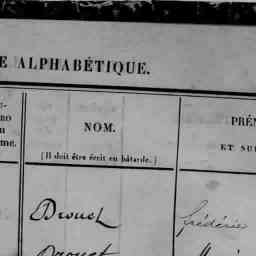 E ALPHABÉTIQUE.
RO
me.
NOM.
(Il doit être écrit en bâtarde.)
PRÉN
ET SU
Drouet
frédéric
Drouet